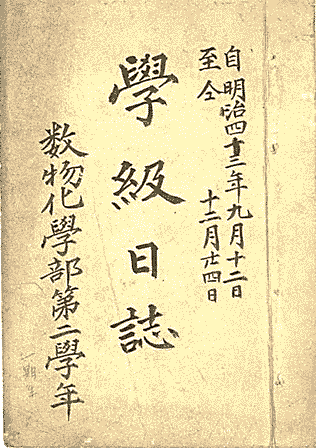 自明治四十三年九月十二日
至仝 十二月廿四日
學級日誌
数物化學部第二學年